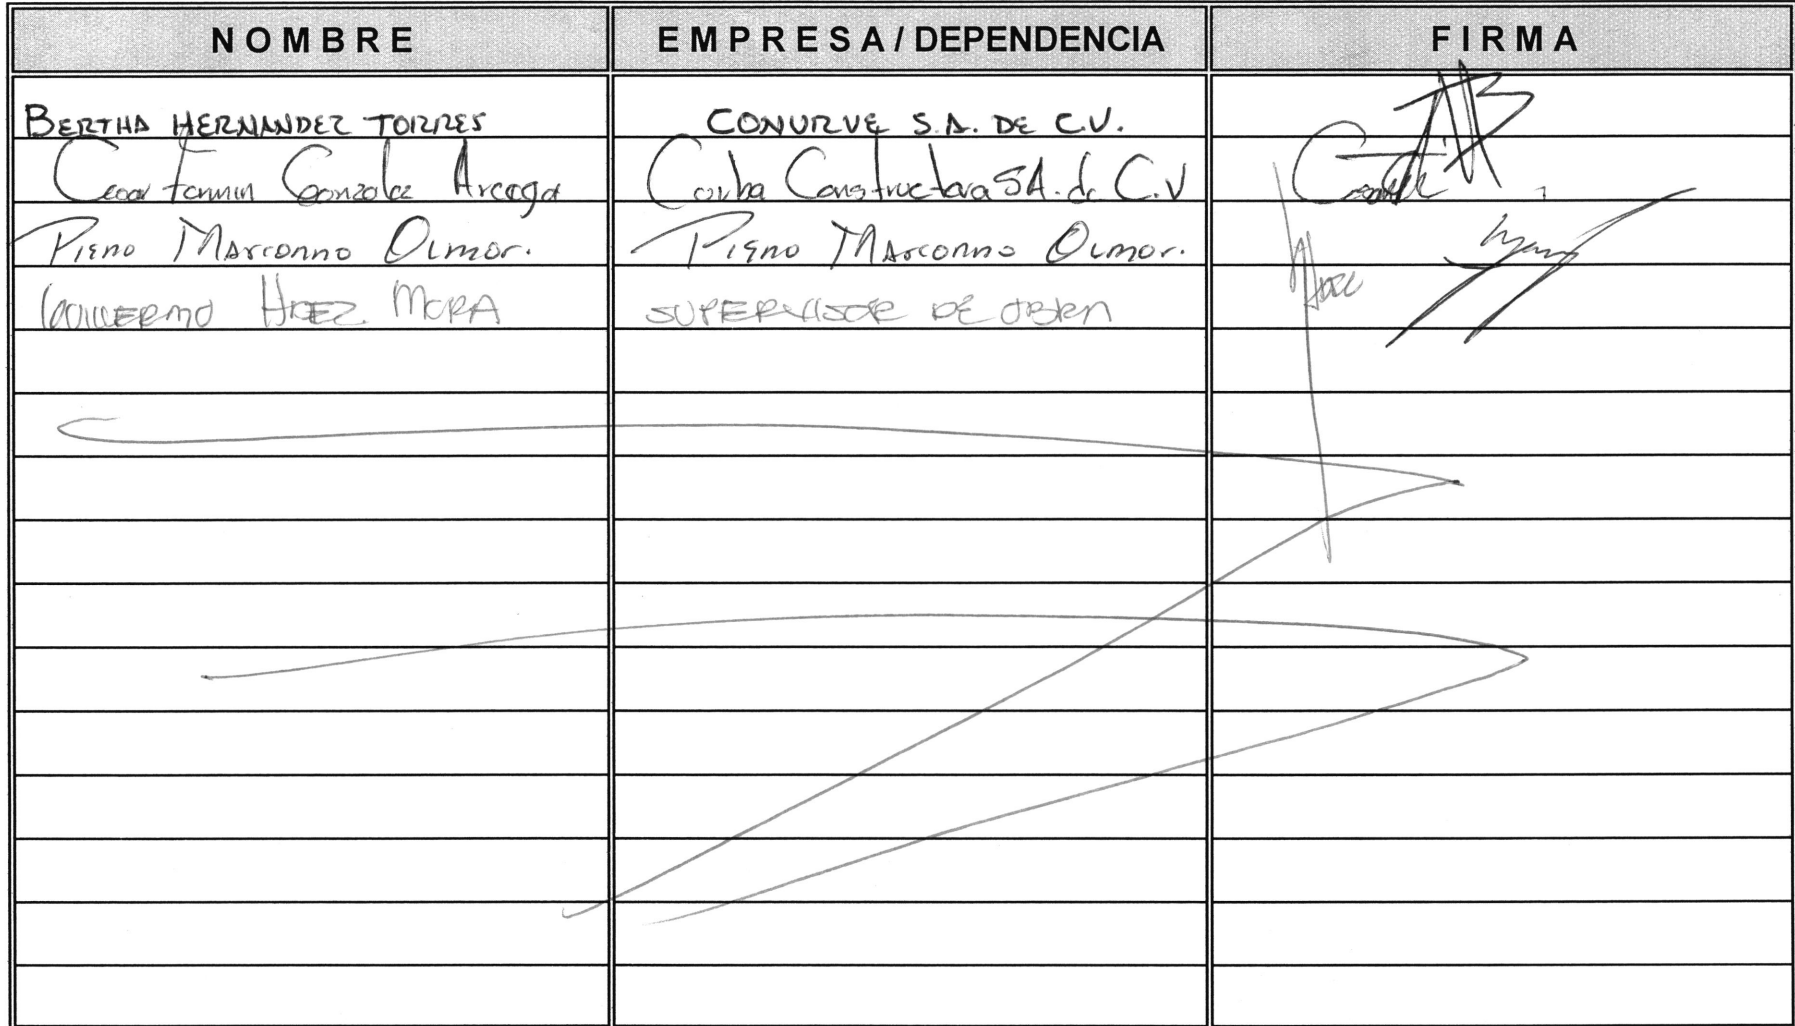 NOMBRE EMPRESA/DEPENDENCIA FIRMA
BERTHA HERNANDEZ TORRES CONURVE S.A. DE C.V.
Cesar Fermin Gonzalez Arceaga Constructora S.A. de C.V
Marconno Olmor. Marconno Olmor.
GUILLERMO HDEZ MORA SUPERVISOR DE OBRA